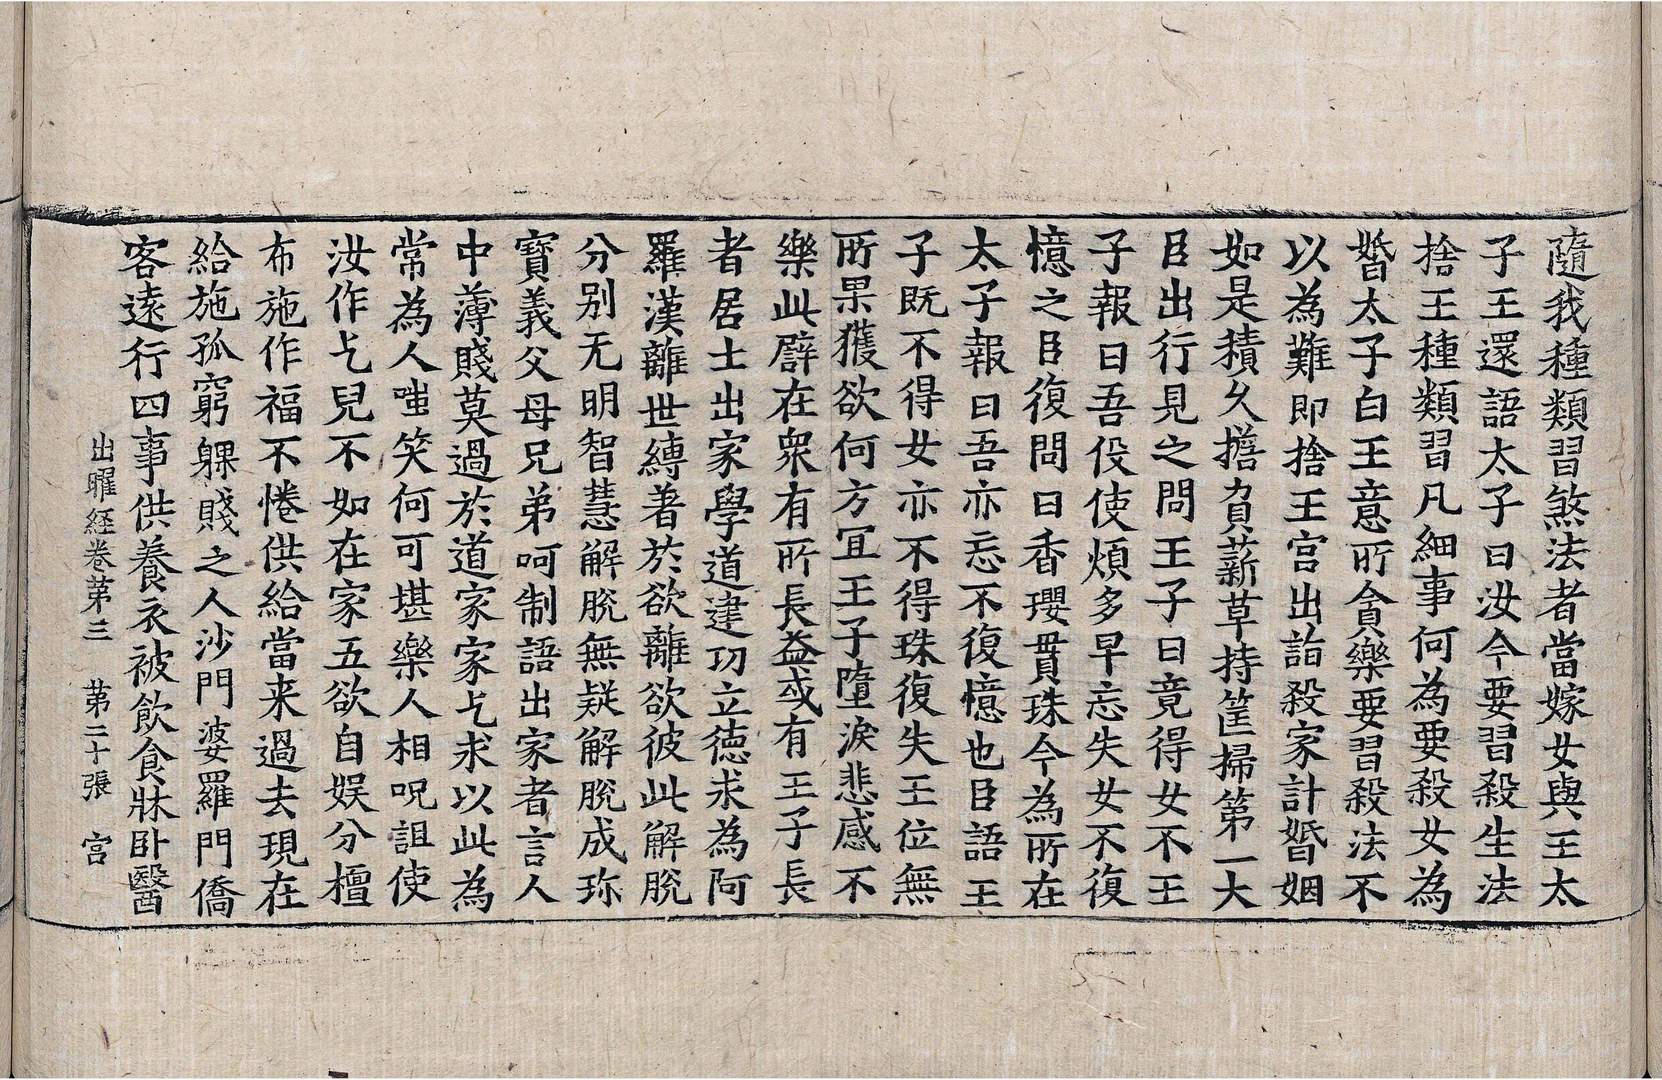 隨我種類習煞法者當嫁女與王太
子王還語太子曰汝今要習殺生法
捨王種類習凡細事何為要殺女為
婚太子白王意所貪樂要習殺法不
以為難即捨王宮出詣殺家計婚姻
如是積久擔負薪草持筐掃第一大
臣出行見之問王子曰竟得女不王
子報曰吾伇使煩多早忘失女不復
憶之臣復問曰香瓔貫珠今為所在
太子報曰吾亦忘不復憶也臣語王
子既不得女亦不得珠復失王位無
所果獲欲何方冝王子墮淚悲感不
樂此譬在衆有所長益或有王子長
者居士出家學道建功立德求為阿
羅漢離世縛著於欲離欲彼此解脫
分別无明智慧解脫無疑解脫成珎
寶義父母兄弟呵制語出家者言人
中薄賤莫過於道家家乞求以此為
常為人嗤笑何可堪樂人相呪詛使
汝作乞兒不如在家五欲自娛分檀
布施作福不惓供給當来過去現在
給施孤窮躶賤之人沙門婆羅門僑
客遠行四事供養衣被飲食牀卧醫
出曜経卷苐三　苐二十張　宮